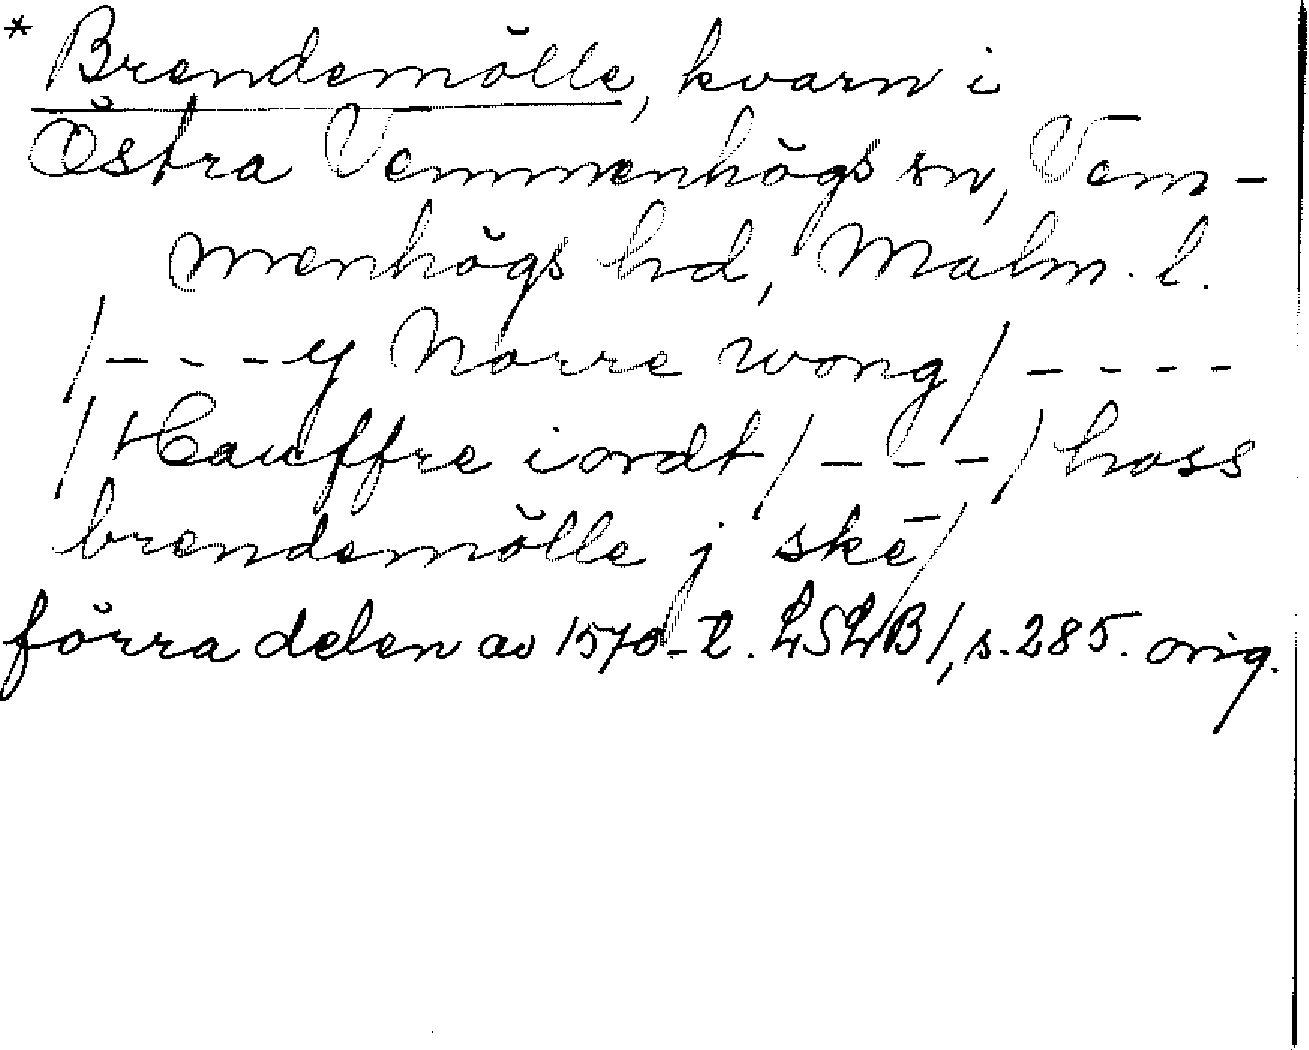 * Brendemölle, kvarn i
Östra Vemmenhögs sn, Vem-
menhögs hd, Malm. l.
/- - - y Norre wong / - - - -
/ Hauffre iordt / - - - / hoss
brendemölle j skē /
förra delen av 1570-t. LSLB 1, s. 285. orig.